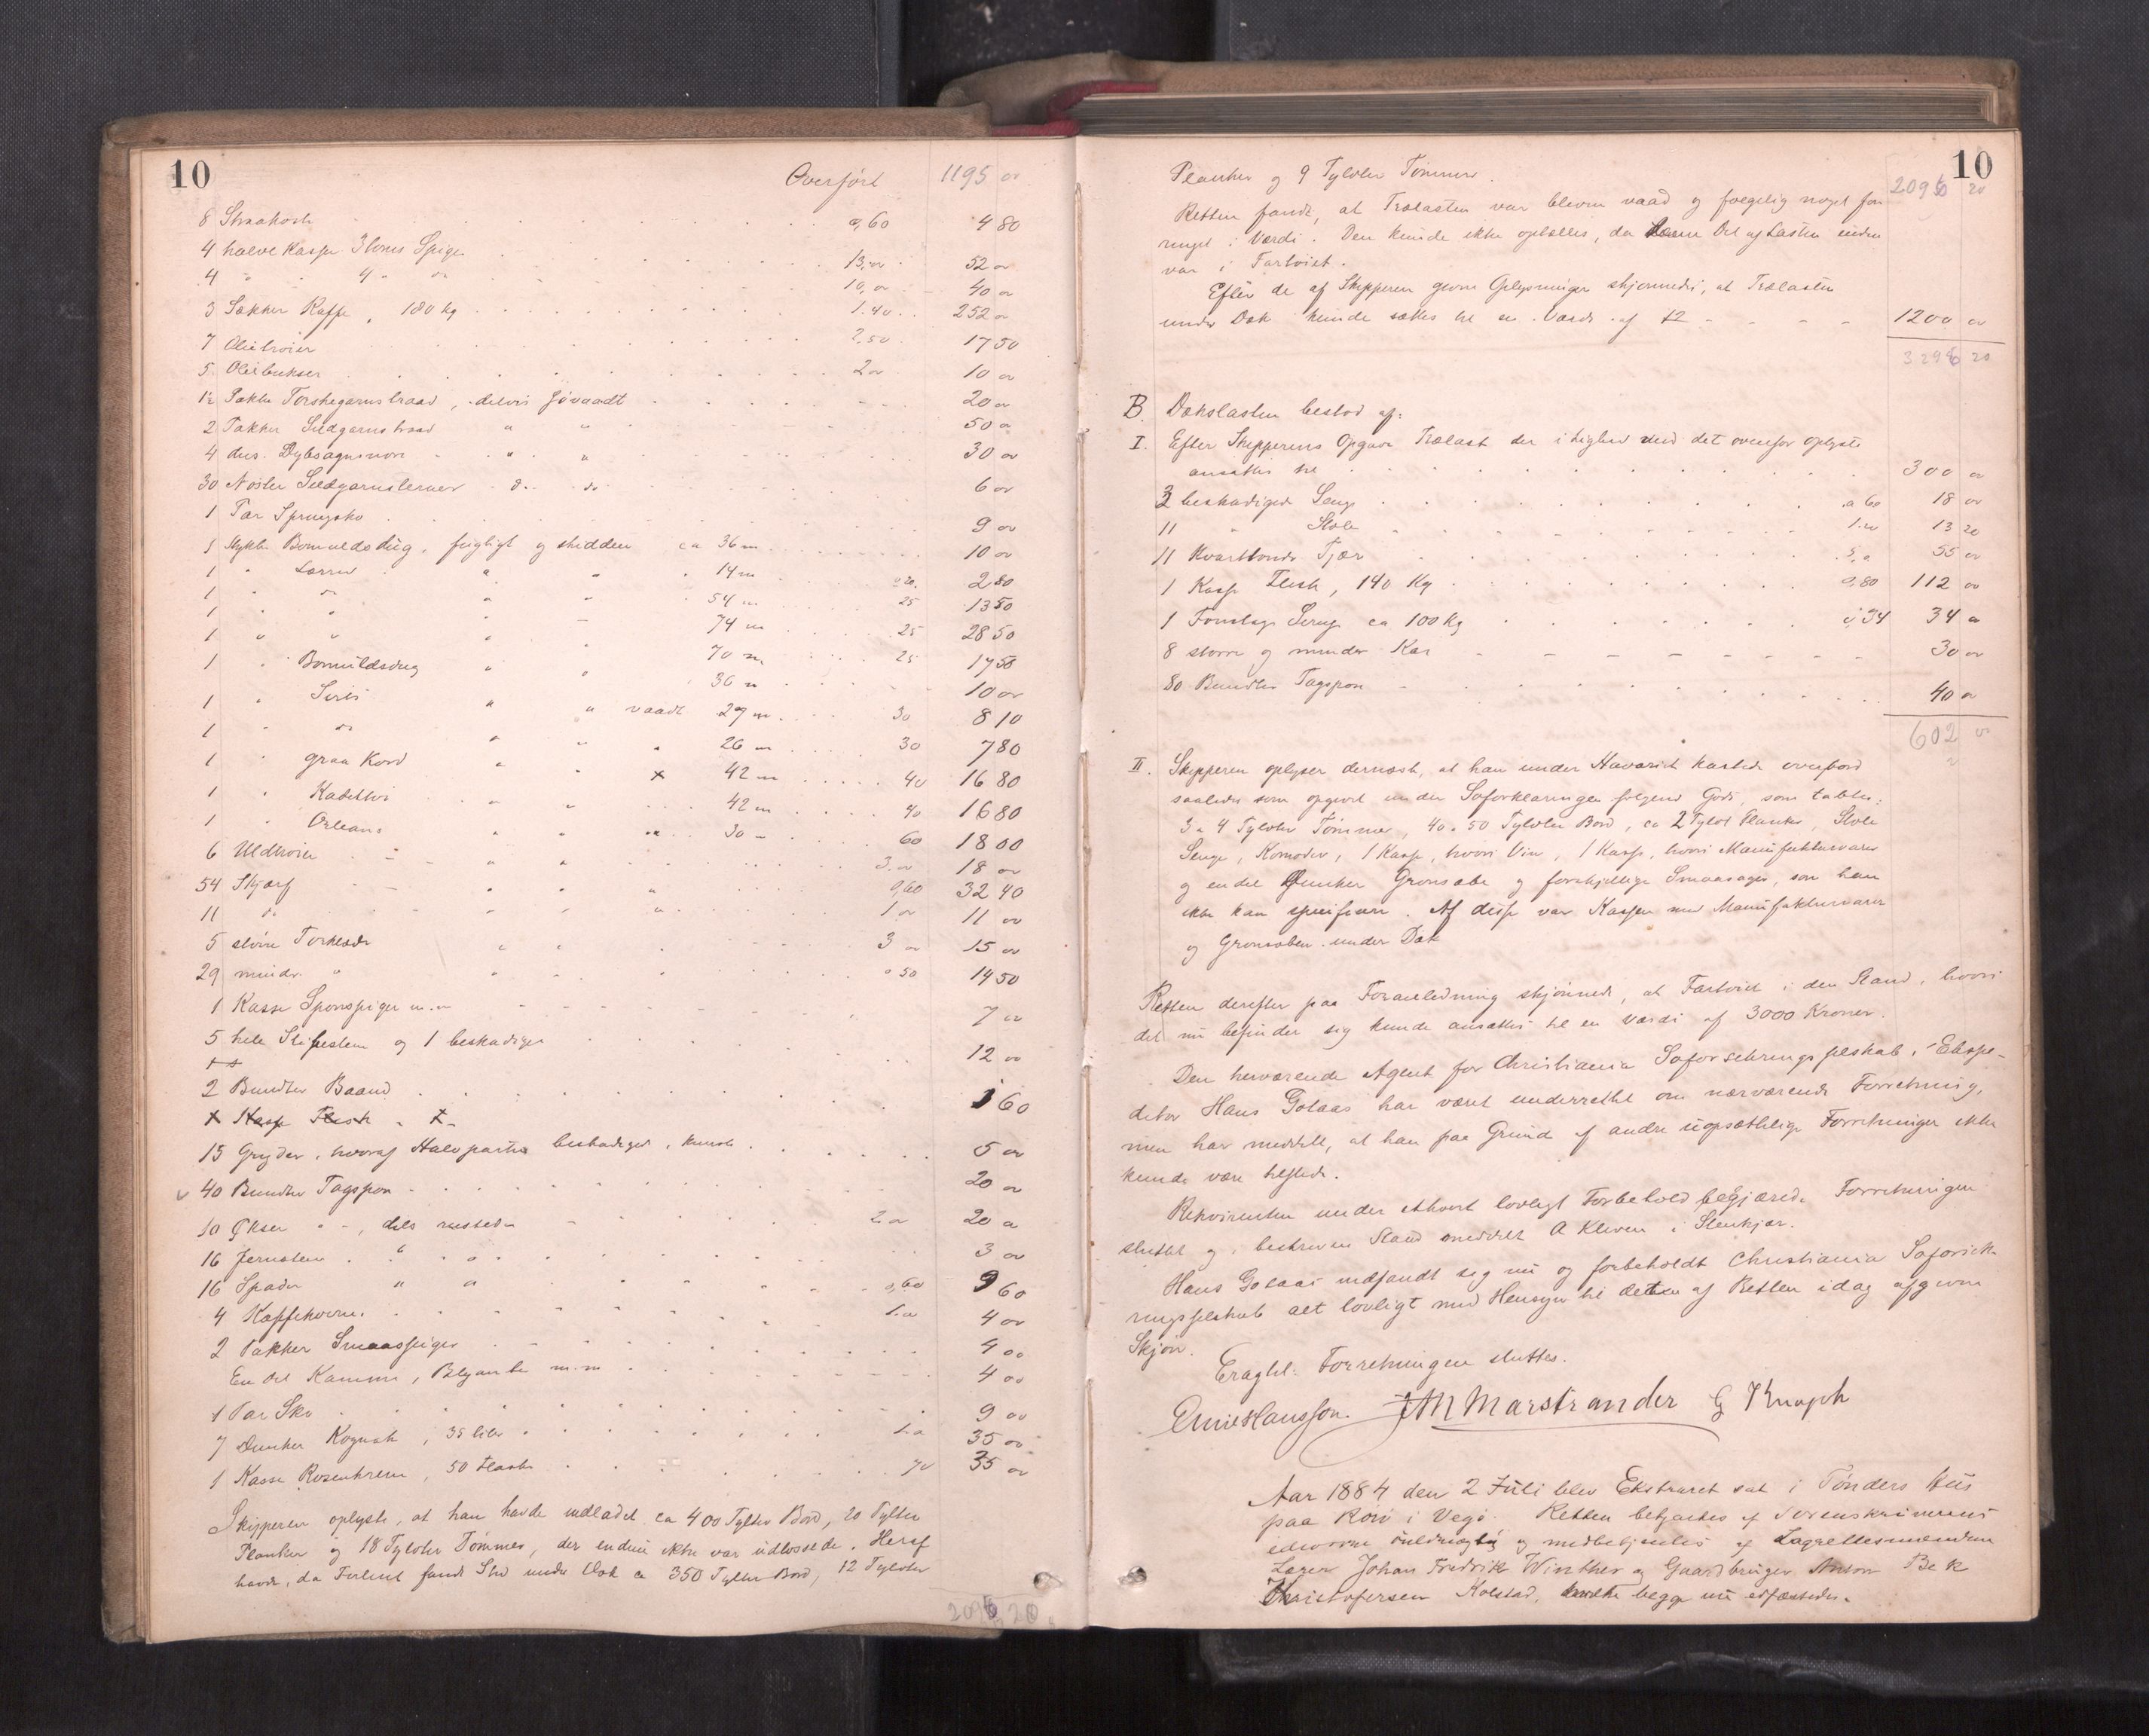 10
Overført 1195 00
8 Straakoste 0,60 4 80
4 halve Kasser 3 toms Spiger 13,00 52 00
4 " " 4 " do 10,00 40 00
3 Sækker Kaffe, 180 Kg 1.40 252 00
7 Olietrøier 2,50 17 50
5 Oliebukser 2 00 10 00
1½ Pakke Torskegarnstraad, delvis sjøvaadt 20 00
2 Pakker Sildgarnstraad " " 50 00
4 dus. Dybsagnsnøre " " 30 00
30 Nøster Sildgarnsterner d. do 6 00
1 Par Sprugsko 9 00
1 Stykke Bomuldsdug, fugtigt og skidden ca 36 m 10 00
1 " Lærred " " 14 m 0 20 2 80
1 " do " " 54 m 25 13 50
1 " " " " 74 m 25 28 50
1 " " " " 70 m 25 17 50
1 " Bomuldsdug " " 36 m 10 00
1 " Sirts " " vaadt 27 m 30 8 10
1 " do " " " 26 m 30 7 80
1 " graa Kord " " x 42 m 40 16 80
1 " Kadettøi " " 42 m 40 16 80
1 " Orleans " " " 30 " 60 18 00
6 Uldtrøier " " 3.00 18 00
54 Skjærf " " " 0,60 32 40
11 do " " " 1 00 11 00
5 større Tørklæder " " 3 00 15 00
29 mindre " " " 0 50 14 50
1 Kasse Sponspiger m.m 7 00
5 hele Slibestene og 1 beskadiget 12 00
2 Bundter Baand 1 60
1 Kasse Flesk
15 Gryder, hvoraf Halvparten beskadiget, knust 5 00
40 Bundter Tagspon 20 00
10 Økser " -, dels rustede 2 00 20 00
16 Jernsten " " " 3 00
16 Spader " " 0,60 9 60
4 Kaffekværne 1.00 4 00
2 Pakker Smaaspiger 4 00
En Del Kamme, Blyanter m.m 4 00
1 Par Sko 9 00
7 Dunker Kognak, 35 liter 1.00 35 00
1 Kasse Rosenkrem, 50 flasker 70 35 00
Skipperen oplyste, at han havde indladet ca 400 Tylter Bord, 20 Tylter
Planker og 18 Tylvter Tømmer, der endnu ikke var udlossede. Heraf
havde, da Forliset fandt Sted under Dæk ca 350 Tylter Bord, 12 Tylvter
2096 20
10
Planker og 9 Tylvter Tømmer.
2096 20
Retten fandt, at Trælasten var bleven vaad og følgelig noget for
ringet i Værdi. Den kunde ikke optælles, da denne Del af Lasten endnu
var i Fartøiet.
Efter de af Skipperen givne Oplysninger skjønnedes, at Trælasten
under Dæk kunde sættes til en Værdi af 1200 00
3296 20
B. Dækslasten bestod af:
I. Efter Skipperens Opgave Trælast der i Lighed med det ovenfor oplyste
ansættes til 300 00
3 beskadigede Senge a 60 18 00
11 " Stole 1.20 13 20
11 Kvarttønder Tjære 5,00 55 00
1 Kasse Flesk, 140 Kg 0,80 112 00
1 Fonstage Sirup ca 100 Kg 0,34 34 00
8 større og mindre Kar 30 00
80 Bundter Tagspon 40 00
602 00
II. Skipperen oplyser dernæst, at han under Havariet kastede overbord
saaledes som opgivet under Søforklaringen følgende Gods, som tabtes:
3 a 4 Tylvter Tømmer, 40 a 50 Tylvter Bord, ca 2 Tylvt Planker, Stole
Senge, Komoder, 1 Kasse, hvori Vin, 1 Kasse, hvori Manufakturvarer
og endel Dunker Grønsæbe og forskjellige Smaasager, som han
ikke kan specificere. Af disse var Kassen med Manufakturvarer
og Grønsæben under Dæk
Retten derefter paa Foranledning skjønnede, at Fartøiet i den Stand, hvori
det nu befinder sig kunde ansættes til en Værdi af 3000 Kroner.
Den herværende Agent for Christiania Søforsikringsselskab, Ekspe-
ditør Hans Golaas har været underrettet om nærværende Forretning,
men har meddelt, at han paa Grund af andre uopsættelige Forretninger ikke
kunde være tilstede.
Rekvirenten under ethvert lovligt Forbehold begjærede Forretningen
sluttet og i beskreven Stand meddelt A Kleven i Stenkjær.
Hans Golaas indfandt sig nu og forbeholdt Christiania Søforsik-
ringsselskab alt lovligt med Hensyn til detten af Retten idag afgivne
Skjøn.
Eragtet: Forretningen sluttes.
JM Marstrander G Knoph
Aar 1884 den 2 Juli blev Ekstraret sat i Tønders Hus
paa Rørø i Vegø. Retten betjentes af Sorenskriverens
edsvorne Fuldmægtig og medbetjentes af Lagrettesmændene
Læge Johan Fredrik Winther og Gaardbruger Anton Bek
Kristofersen Kolstad, hvilke begge nu edfæstedes.